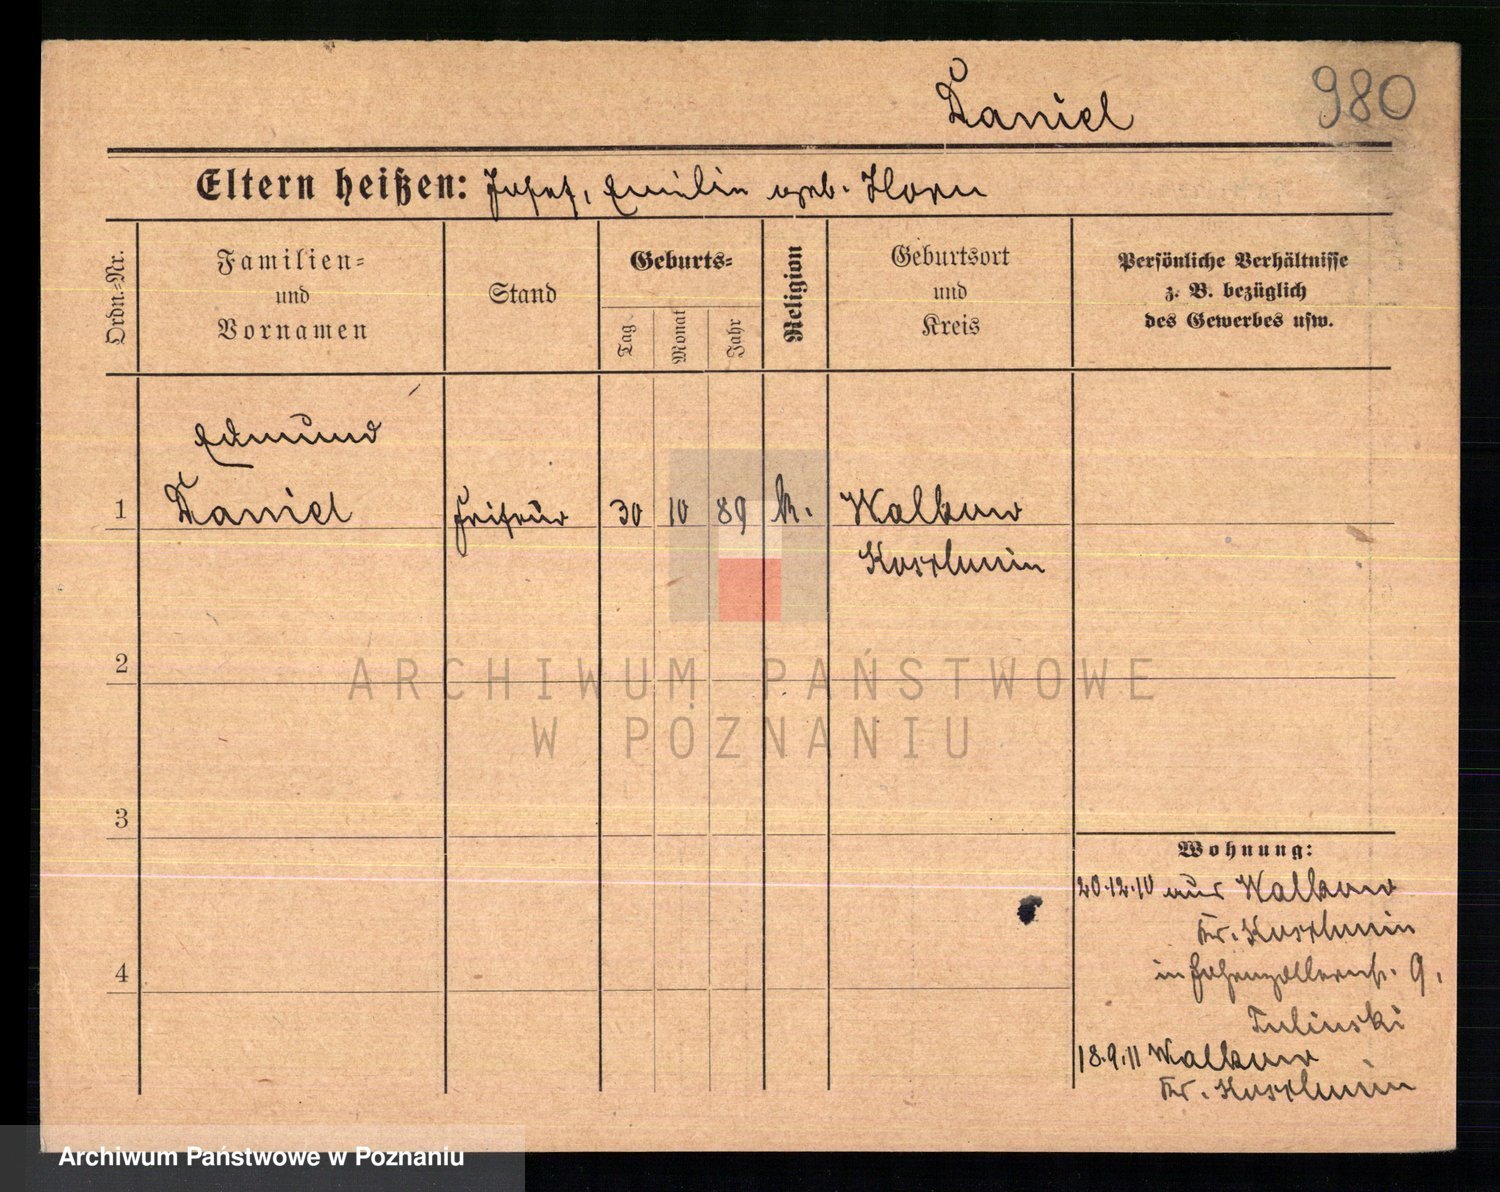 Daniel 980
Eltern heißen: Josef, Emilie geb. Horn
Ordn.-Nr.
Familien-
und
Vornamen
Stand
Geburts-
Tag
Monat
Jahr
Religion
Geburtsort
und
Kreis
Persönliche Verhältnisse
z. B. bezüglich
des Gewerbes usw.
Edmund
1 Daniel Friseur 30 10 89 k. Walkow
Koschmin
2
3
4
Wohnung:
20.12.10 aus Walkow
Kr. Koschmin
in Hohenzollernstr. 9,
Tulinski
18.9.11 Walkow
Kr. Koschmin
ARCHIWUM PAŃSTWOWE
W POZNANIU
Archiwum Państwowe w Poznaniu